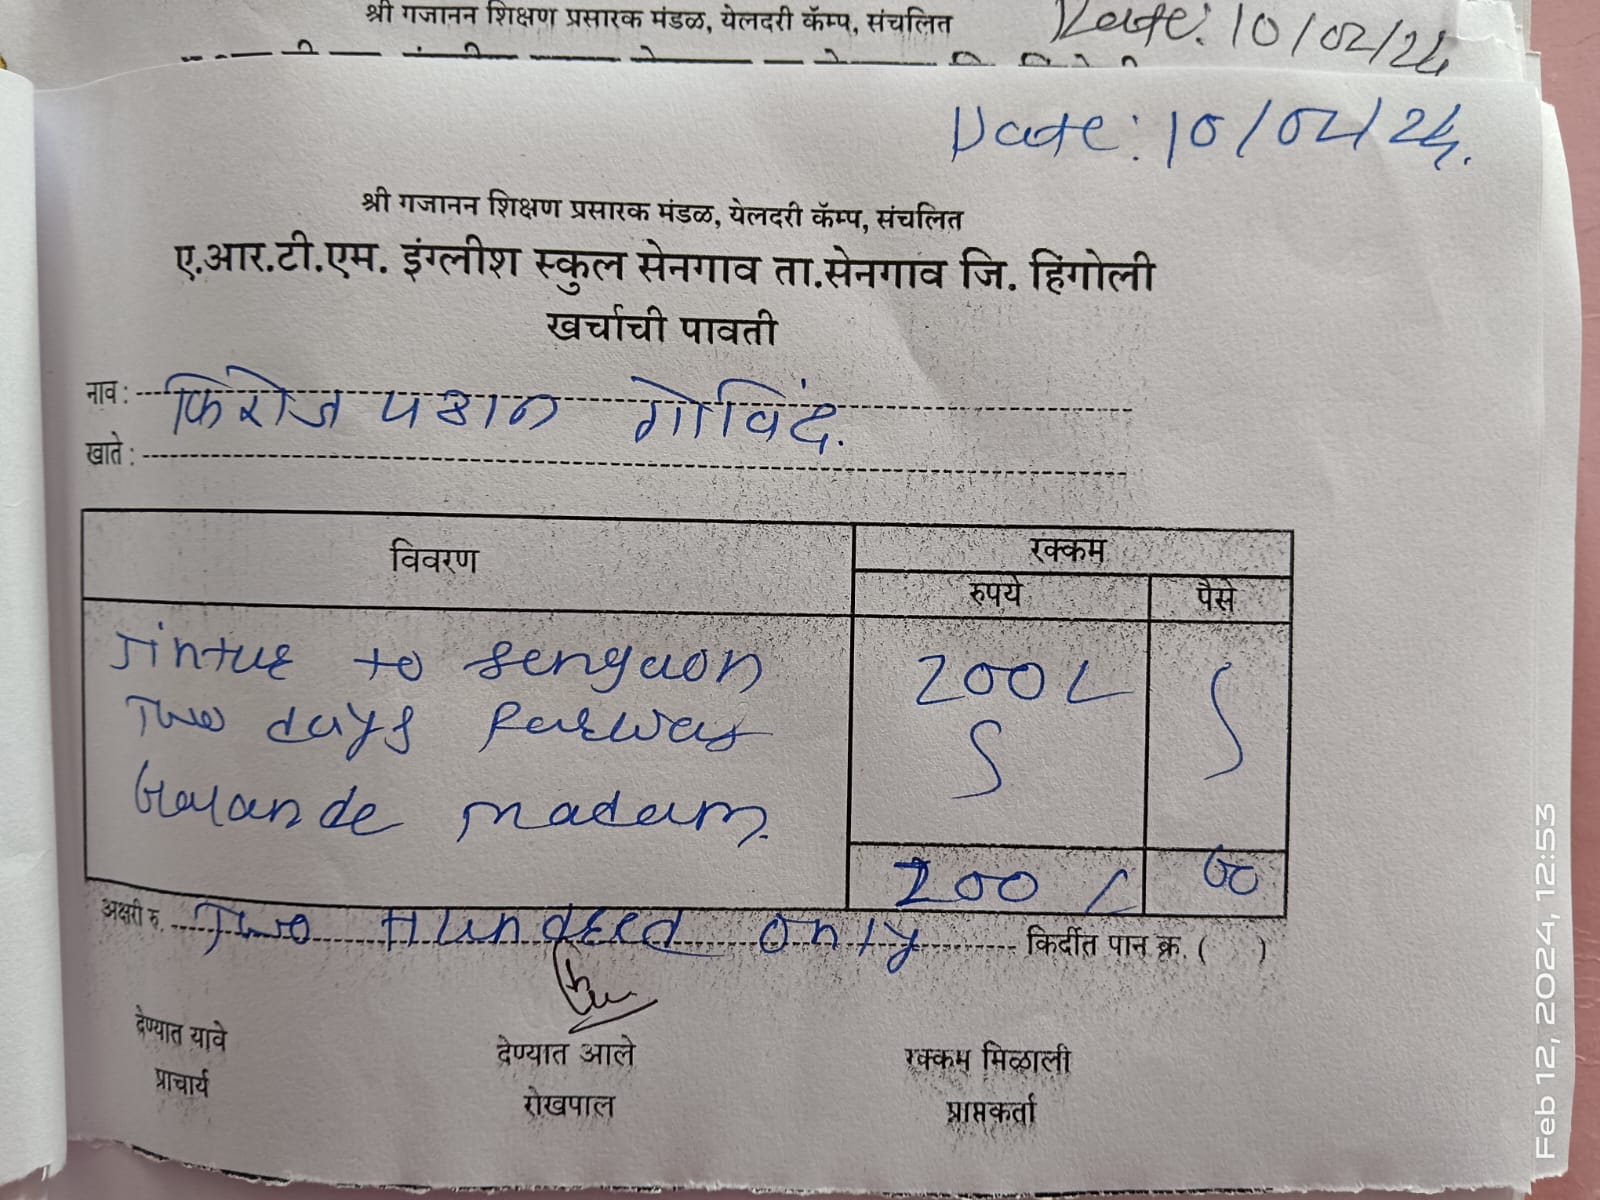 श्री गजानन शिक्षण प्रसारक मंडळ, येलदरी कॅम्प, संचलित
Date: 10/02/24
Date: 10/02/24.
श्री गजानन शिक्षण प्रसारक मंडळ, येलदरी कॅम्प, संचलित
ए.आर.टी.एम. इंग्लीश स्कुल सेनगाव ता.सेनगाव जि. हिंगोली
खर्चाची पावती
नाव : फिरोज पठान गोविंद.
खाते :
विवरण रक्कम
रुपये पैसे
Jintur to Sengaon 200/
Two days
madam.
200/ 00
अक्षरी रु. Two Hundred only किर्दीत पान क्र. ( )
देण्यात यावे देण्यात आले रक्कम मिळाली
प्राचार्य रोखपाल प्राप्तकर्ता
Feb 12, 2024, 12:53